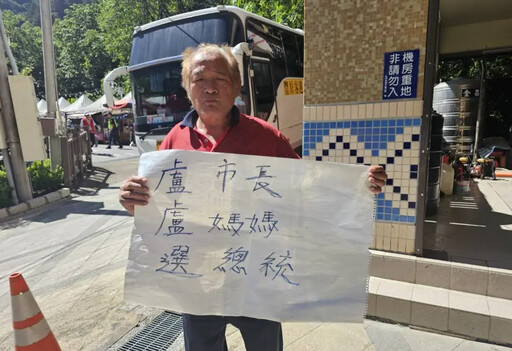 盧市長
盧媽媽
選總統
機房重地
非請勿入